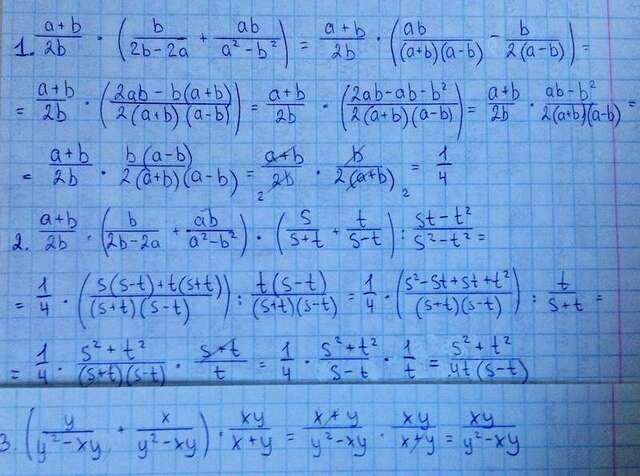 1. (a+b)/(2b) · (b/(2b-2a) + ab/(a²-b²)) = (a+b)/(2b) · (ab/((a+b)(a-b)) - b/(2(a-b))) =
= (a+b)/(2b) · ((2ab-b(a+b))/(2(a+b)(a-b))) = (a+b)/(2b) · ((2ab-ab-b²)/(2(a+b)(a-b))) = (a+b)/(2b) · (ab-b²)/(2(a+b)(a-b)) =
= (a+b)/(2b) · (b(a-b))/(2(a+b)(a-b)) = (a+b)/(2b) · b/(2(a+b)) = 1/4
2. (a+b)/(2b) · (b/(2b-2a) + ab/(a²-b²)) · (s/(s+t) + t/(s-t)) : (st-t²)/(s²-t²) =
= 1/4 · ((s(s-t)+t(s+t))/((s+t)(s-t))) : (t(s-t))/((s+t)(s-t)) = 1/4 · ((s²-st+st+t²)/((s+t)(s-t))) : t/(s+t) =
= 1/4 · (s²+t²)/((s+t)(s-t)) · (s+t)/t = 1/4 · (s²+t²)/(s-t) · 1/t = (s²+t²)/(4t(s-t))
3. (y/(y²-xy) + x/(y²-xy)) · xy/(x+y) = (x+y)/(y²-xy) · xy/(x+y) = xy/(y²-xy)